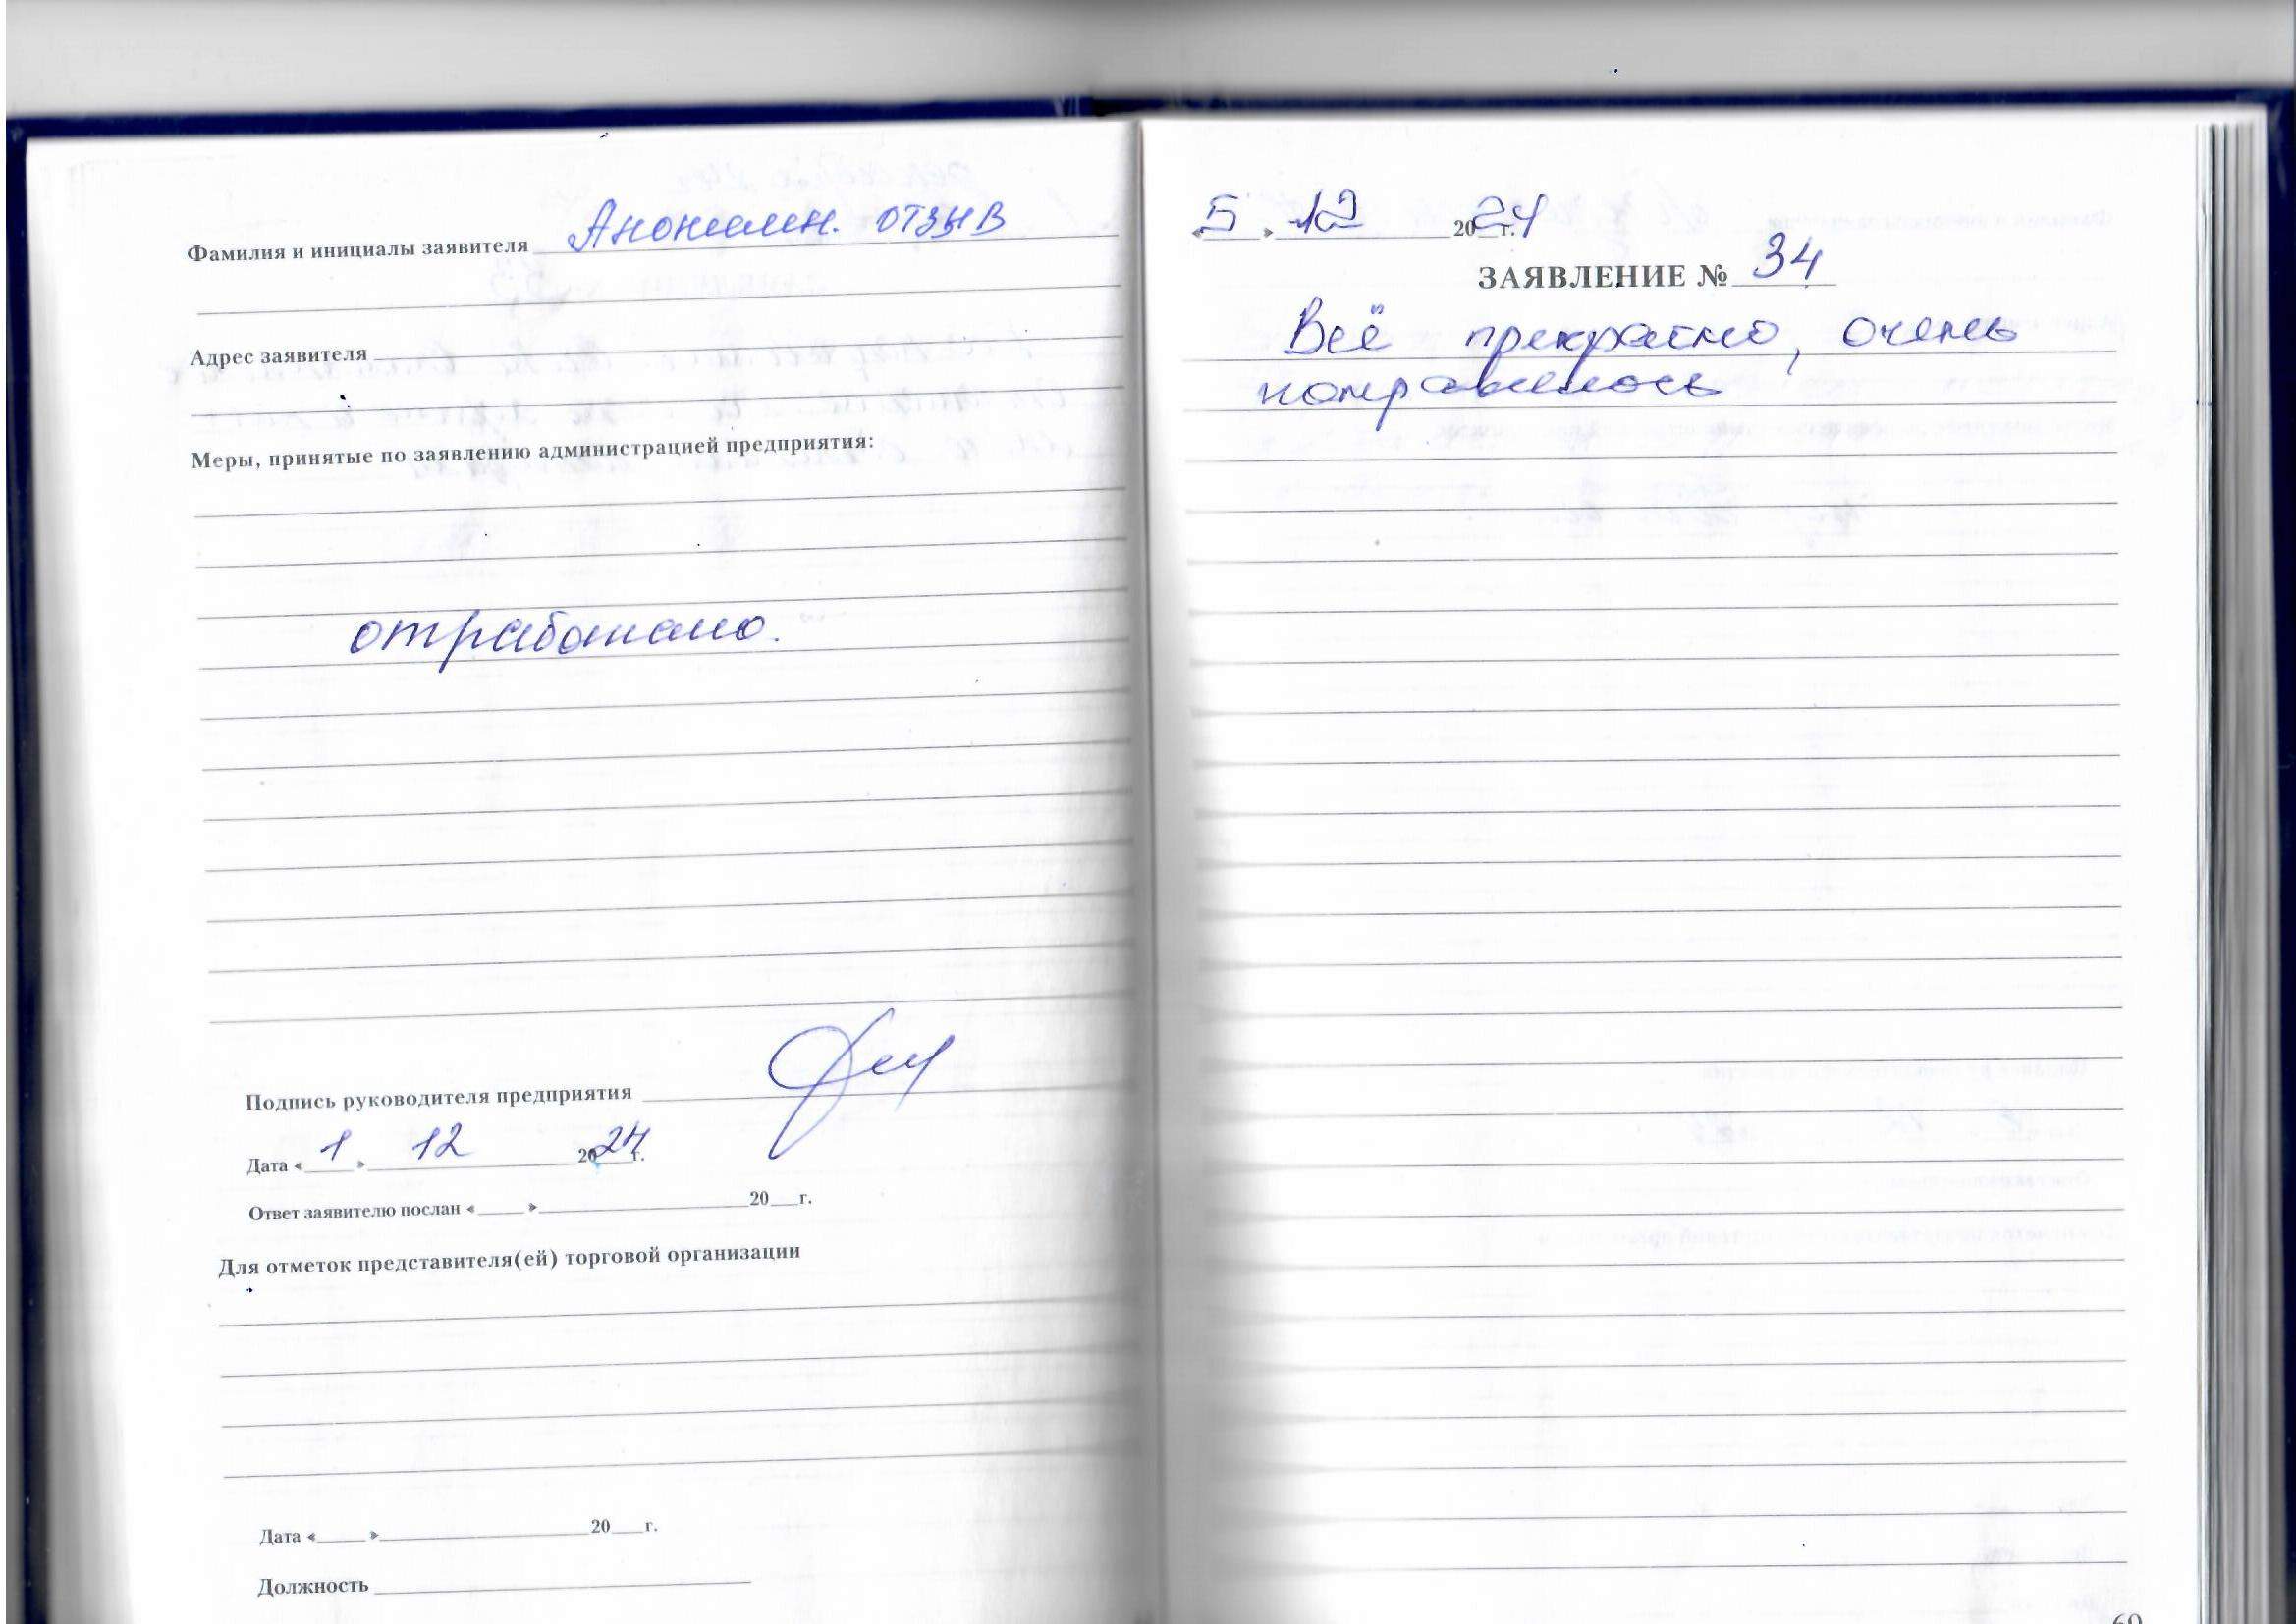 Фамилия и инициалы заявителя Анонимн. отзыв
Адрес заявителя
Меры, принятые по заявлению администрацией предприятия:
отработано.
Подпись руководителя предприятия
Дата « 1 » 12 2024 г.
Ответ заявителю послан «____» ____ 20__ г.
Для отметок представителя(ей) торговой организации
Дата «____» ____ 20__ г.
Должность
« 5 » 12 2024 г.
ЗАЯВЛЕНИЕ № 34
Всё прекрасно, очень
понравилось